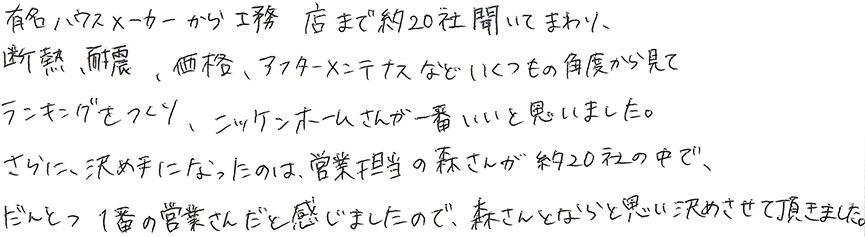 有名ハウスメーカーから工務店まで約20社聞いてまわり、
断熱、耐震、価格、アフターメンテナスなどいくつもの角度から見て
ランキングをつくり、ニッケンホームさんが一番いいと思いました。
さらに、決め手になったのは、営業担当の森さんが約20社の中で、
だんとつ1番の営業さんだと感じましたので、森さんとならと思い決めさせて頂きました。